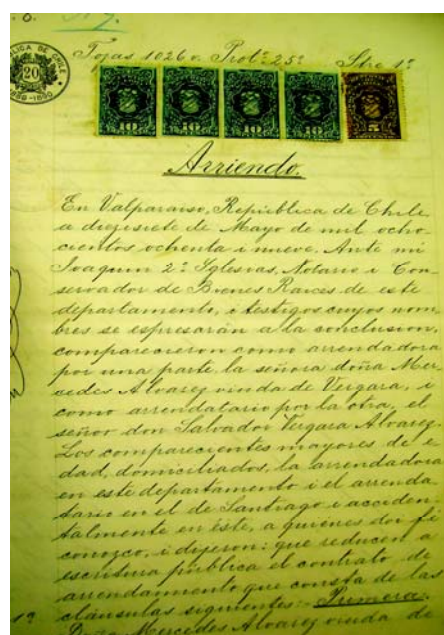 Fojas 1026 v. Prot.º 25º Stre 1º
REPUBLICA DE CHILE
20
10 10 10 10 5
Arriendo.
En Valparaiso, República de Chile
a diezisiete de Mayo de mil ocho-
cientos ochenta i nueve. Ante mi
Joaquin 2º Iglesias, Notario i Con-
servador de Bienes Raices de este
departamento, i testigos cuyos nom-
bres se espresarán a la conclusion,
comparecieron como arrendadora
por una parte la señora doña Mer-
cedes Alvarez viuda de Vergara, i
como arrendatario por la otra, el
señor don Salvador Vergara Alvarez.
Los comparecientes mayores de e-
dad, domiciliados, la arrendadora
en este departamento i el arrenda-
tario en el de Santiago i acciden-
talmente en éste, a quiénes doi fé
conozco, i dijeron: que reducen a
escritura pública el contrato de
arrendamiento que consta de las
cláusulas siguientes:- Primera.
1º Doña Mercedes Alvarez viuda de